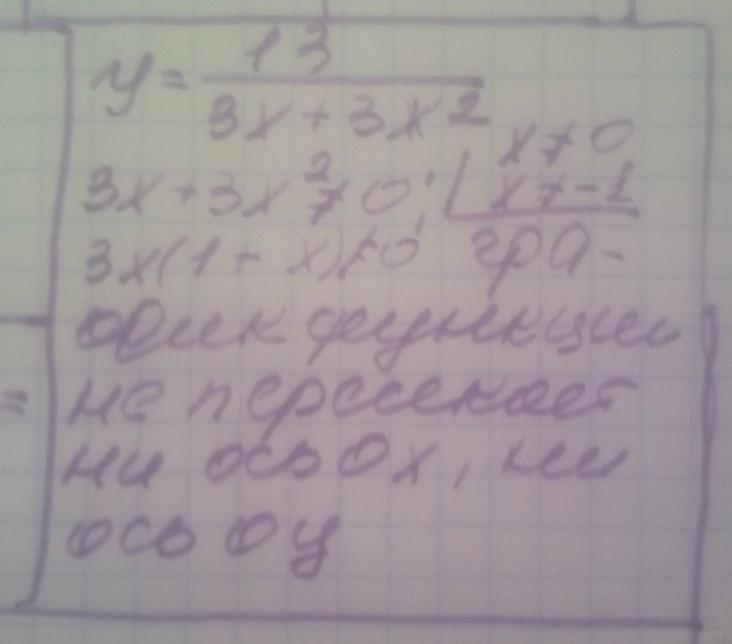 y = 13 / 3x + 3x²
3x + 3x² ≠ 0; x ≠ 0
x ≠ -1
3x(1 + x) ≠ 0 гра-
фик функции
не пересекает
ни ось Ox, ни
ось Oy
=